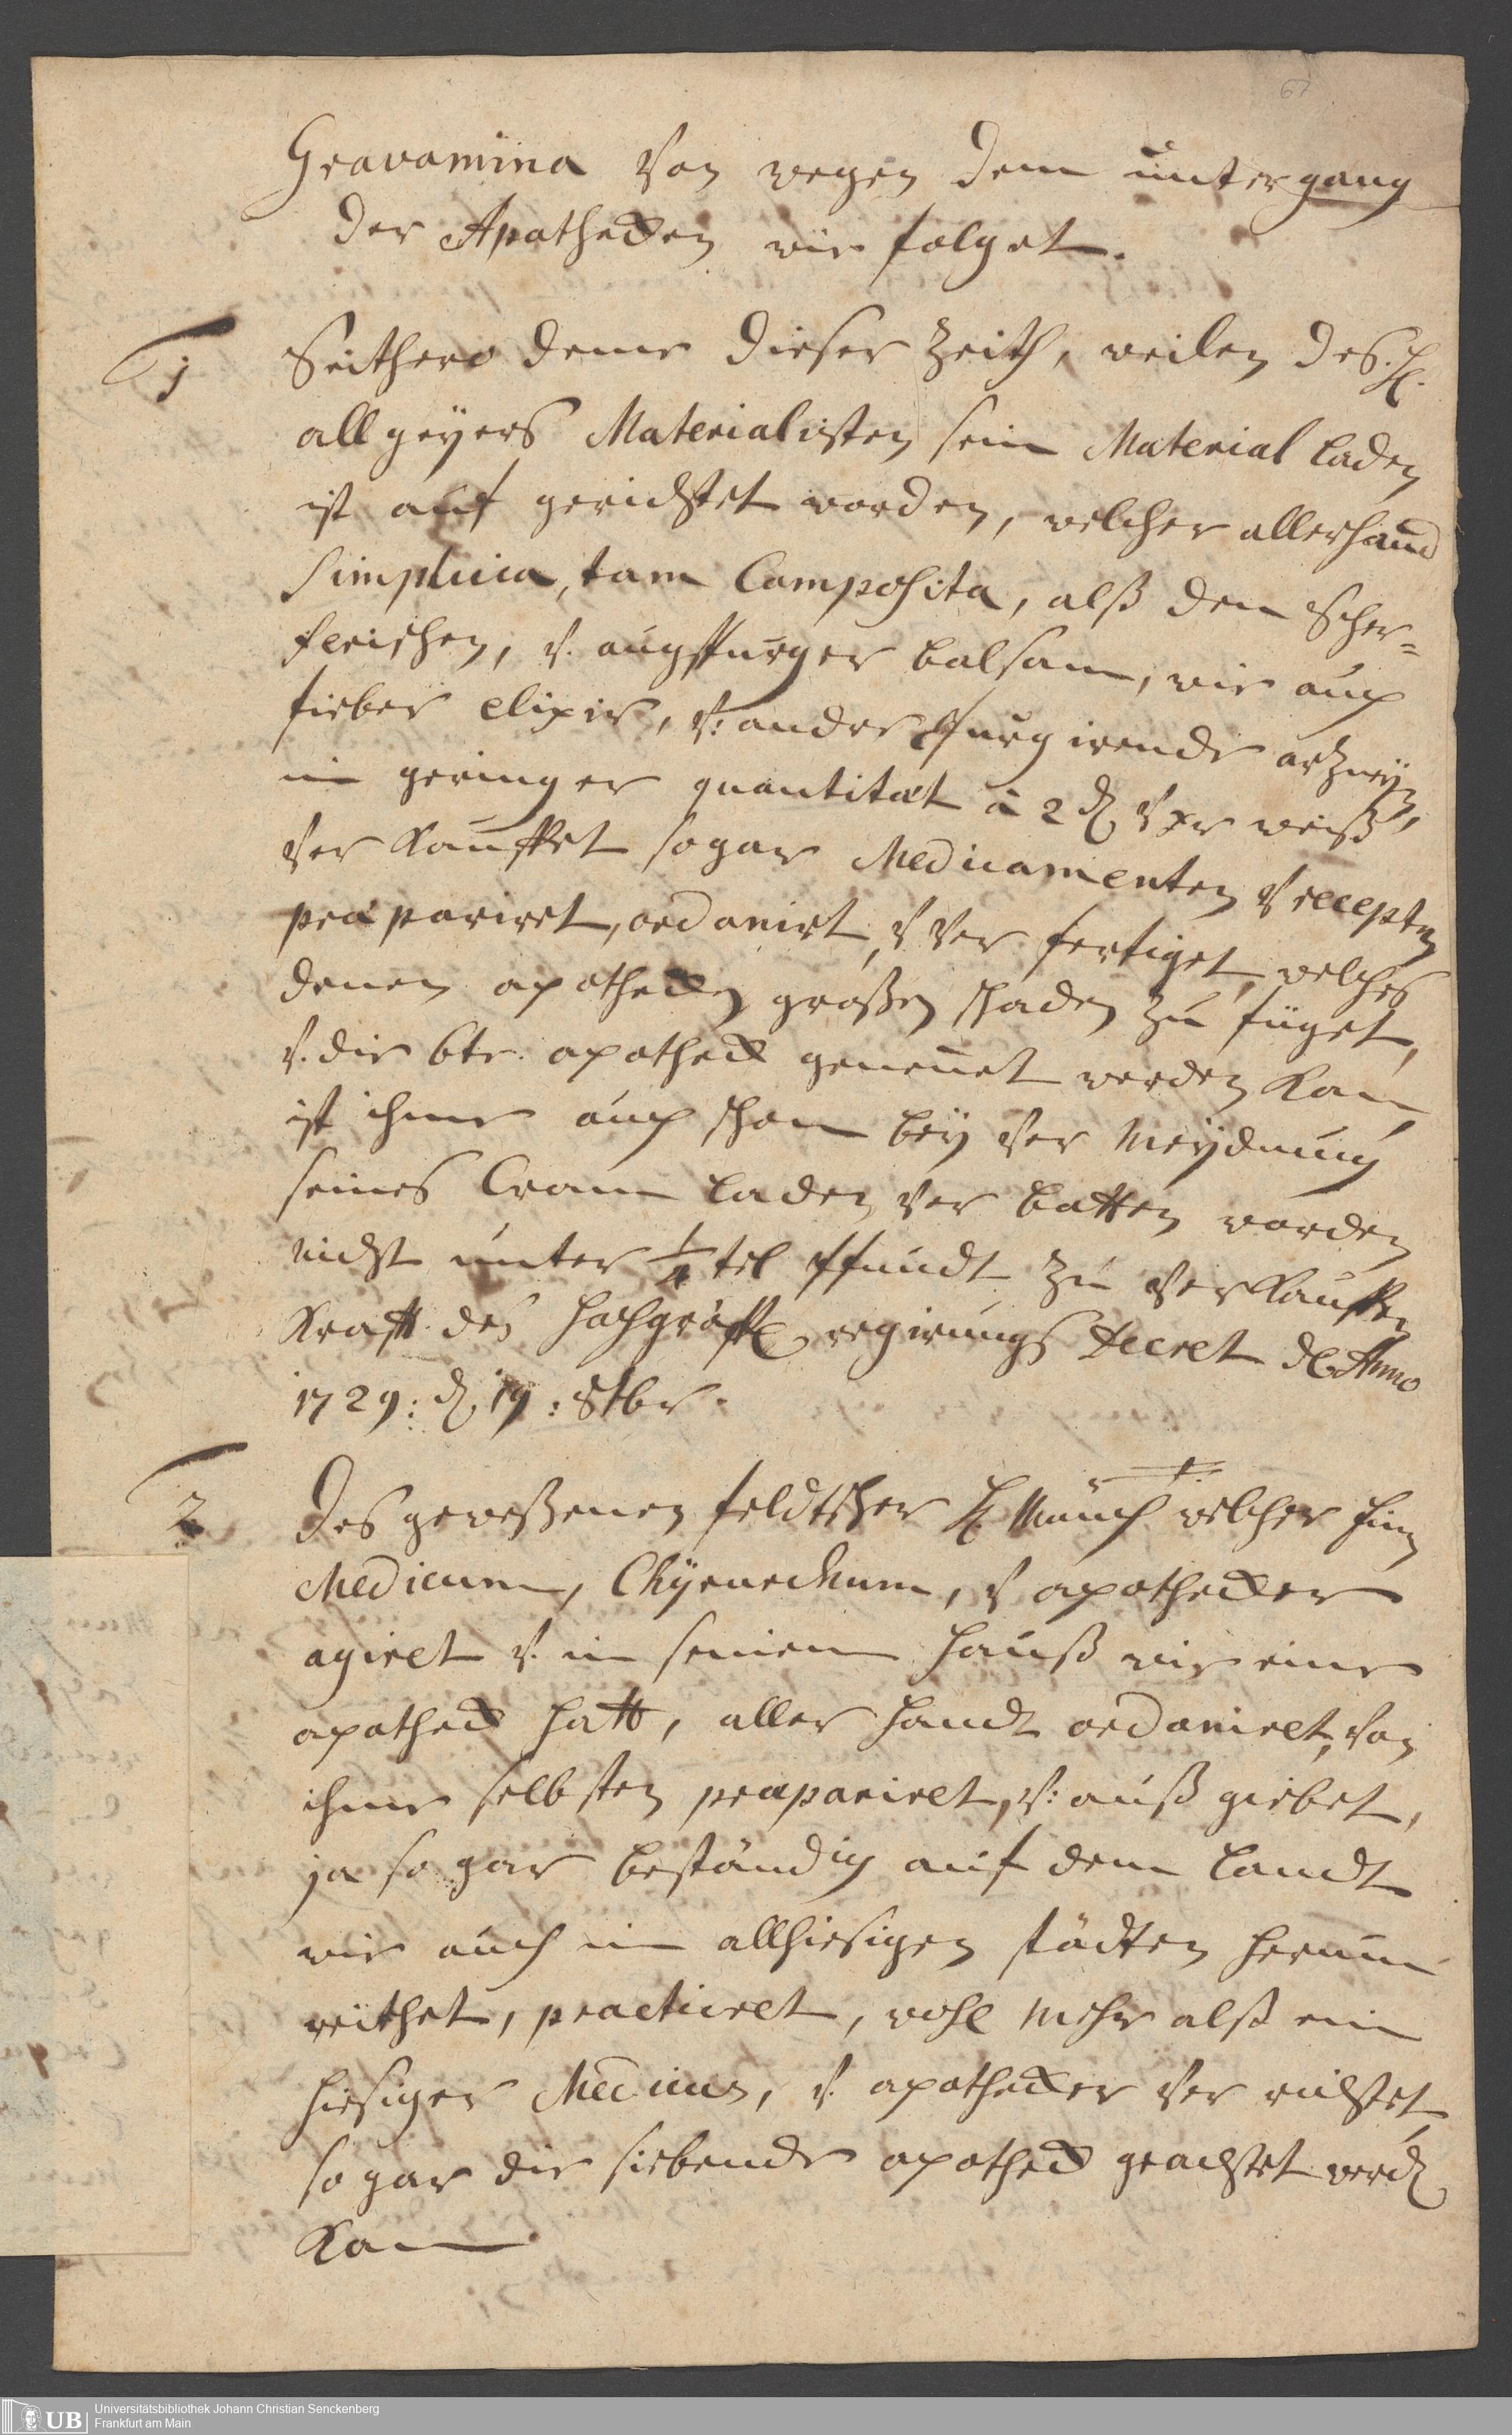 67
Gravamina von wegen dem untergang
der Apothecken wie folget.
1
Seithero deme dieser Zeith, weilen des H.
allgeyers Materialisten sein Material laden
ist auf gerichtet worden, welcher allerhand
Simplicia, tam Composita, alß den Scher=
v. augspurger balsam, wie auch
fieber elixir, v: andre purgirende artzney,
in geringer quantitæt à 2 d vxr weiß
ver kauffet sogar Medicamenten v recepten
præpariret, ordonirt, v ver fertiget, welches
denen apothecken großen schaden zu füget,
v. die 6te apotheck genennet werden kan
ist ihme auch schon bey ver meydnung
seines Cram laden ver botten worden
nicht unter 1/4 tel pfundt zu verkauffen
Krafft des hochgräffl regierungs Decret de Anno
1729: d 19: 8tbr.
2
Des geweßenen feldtscher H Münch welcher hier
Medicum, Chyrurchum, v apothecker
agiret v. in seinem hauß wie eine
apotheck hatt, aller handt ordoniret, von
ihme selbsten præpariret, v: auß giebet,
ja so gar beständig auf dem landt
wie auch in allhiesigen städten herum
reithet, practiciret, wohl mehr alß ein
hiesiger Medicus, v. apothecker ver richtet
so gar die siebende apotheck geachtet werd
kan
UB
Universitätsbibliothek Johann Christian Senckenberg
Frankfurt am Main